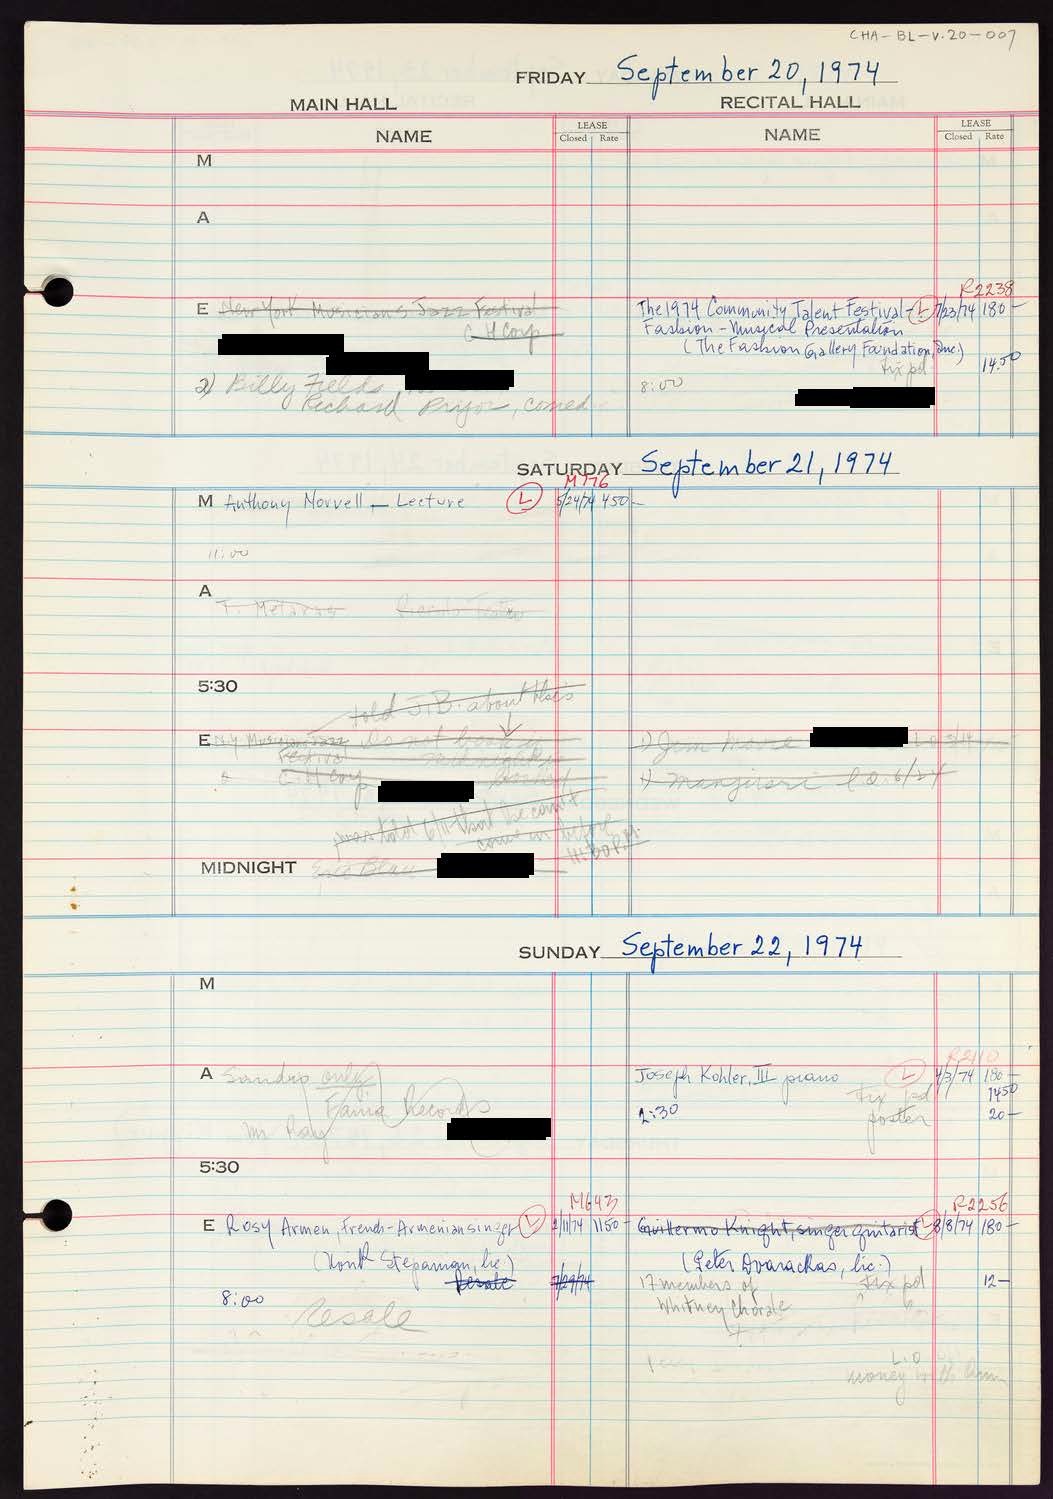 CHA-BL-V.20-007
FRIDAY September 20, 1974
MAIN HALL RECITAL HALL
NAME LEASE Closed Rate NAME LEASE Closed Rate
M
A
R2238
E New York Musicians Jazz Festival
C H Corp
The 1974 Community Talent Festival- L 7/23/74 180-
Fashion-Musical Presentation
(The Fashion Gallery Foundation, Inc.)
tix pd 14.50
8:00
2) Billy Fields
Richard Pryor, comed
SATURDAY September 21, 1974
M776
M Anthony Norvell - Lecture L 5/24/74 450-
11:00
A
5:30
told J.B. about this
E N.Y Musicians Jazz
Festival
C H Corp
Do not book
midnight
1) Jim
1) Manjisri 6/24
was told 6/11 that he can't
come in before
11:00 P.M.
MIDNIGHT Eric Blau
SUNDAY September 22, 1974
M
R2110
A Sandro only
Fania Records
Mr Ray
Joseph Kohler, III piano L 4/3/74 180-
tix pd 1450
2:30 poster 20-
5:30
M643
R2256
E Rosy Armen, French-Armenian singer L 2/11/74 1150-
(Stepanian, lic.)
Resale 7/29/74
8:00
Resale
Guillermo Knight, singer guitarist L 8/8/74 180-
(Peter Dvarackas, lic.)
17 members of tix pd 12-
Whitney Chorale
L.O
money